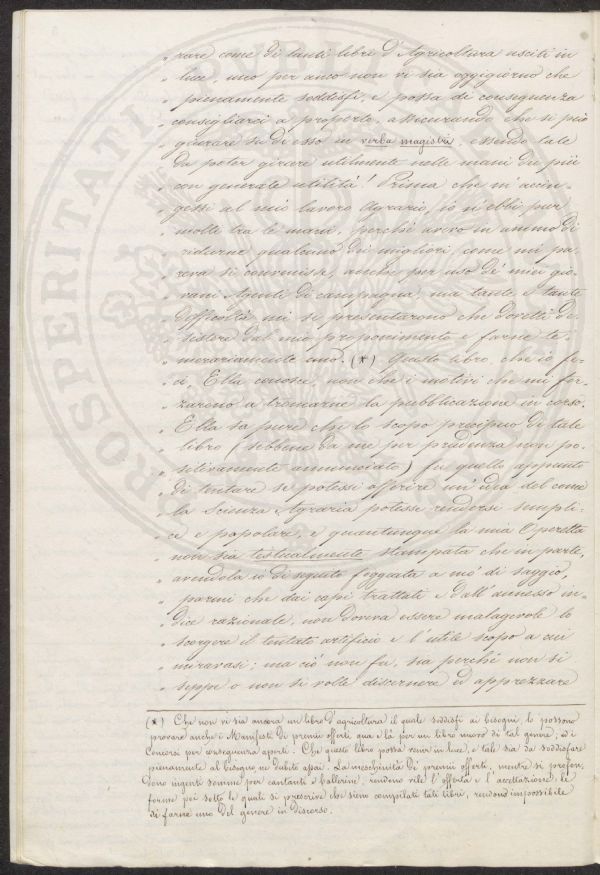 " pare come di tanti libri d'Agricoltura usciti in
" luce, uno per anco non vi sia oggigiorno che
" pienamente soddisfi, e possa di conseguenza
" consigliarci a proporlo, assicurando che si può
" giurare su di esso in verba magistri, essendo tale
" da poter girare utilmente nelle mani dei più
" con generale utilità! Prima che m'accin-
" gessi al mio lavoro Agrario, io n'ebbi pur
" molti tra le mani, perchè avevo in animo di
" ridurne qualcuno dei migliori, come mi pa-
" reva si convenisse, anche per uso de' miei gio-
" vani Agenti di campagna, ma tante e tante
" difficoltà mi si presentarono che dovetti de-
" sistere dal mio proponimento e farne te-
" merariamente uno. (*) Questo libro, che io fe-
" ci, Ella conosce, non che i motivi che mi for-
" zarono a troncarne la pubblicazione in corso.
" Ella sa pure che lo scopo precipuo di tale
" libro (sebbene da me per prudenza non po-
" sitivamente annunciato) fu quello appunto
" di tentare se potessi offerire un'idea del come
" la Scienza Agraria potesse rendersi sempli-
" ce e popolare, e quantunque la mia Operetta
" non sia testualmente stampata che in parte,
" avendola io di seguito foggiata a mo' di saggio,
" parmi che dai capi trattati e dall'annesso in-
" dice razionale, non doveva essere malagevole lo
" scorgere il tentato artificio e l'utile scopo a cui
" miravasi; ma ciò non fu, sia perchè non si
" seppe o non si volle discernere ed apprezzare
(*) Che non vi sia ancora un libro d'agricoltura il quale soddisfi ai bisogni, lo possono
provare anche i Manifesti di premii offerti qua e là per un libro nuovo di tal genere, ed i
Concorsi per conseguenza aperti. Che questo libro possa venir in luce, e tale sia da soddisfare
pienamente al bisogno ne dubito assai. La meschinità di premii offerti, mentre si profon-
dono ingenti somme per cantanti e ballerine, rendono vile l'offerta e l'accettazione; le
forme poi sotto le quali si prescrive che sieno compilati tali libri, rendono impossibile
di farne uno del genere in discorso.
PROSPERITATI PUBLICAE